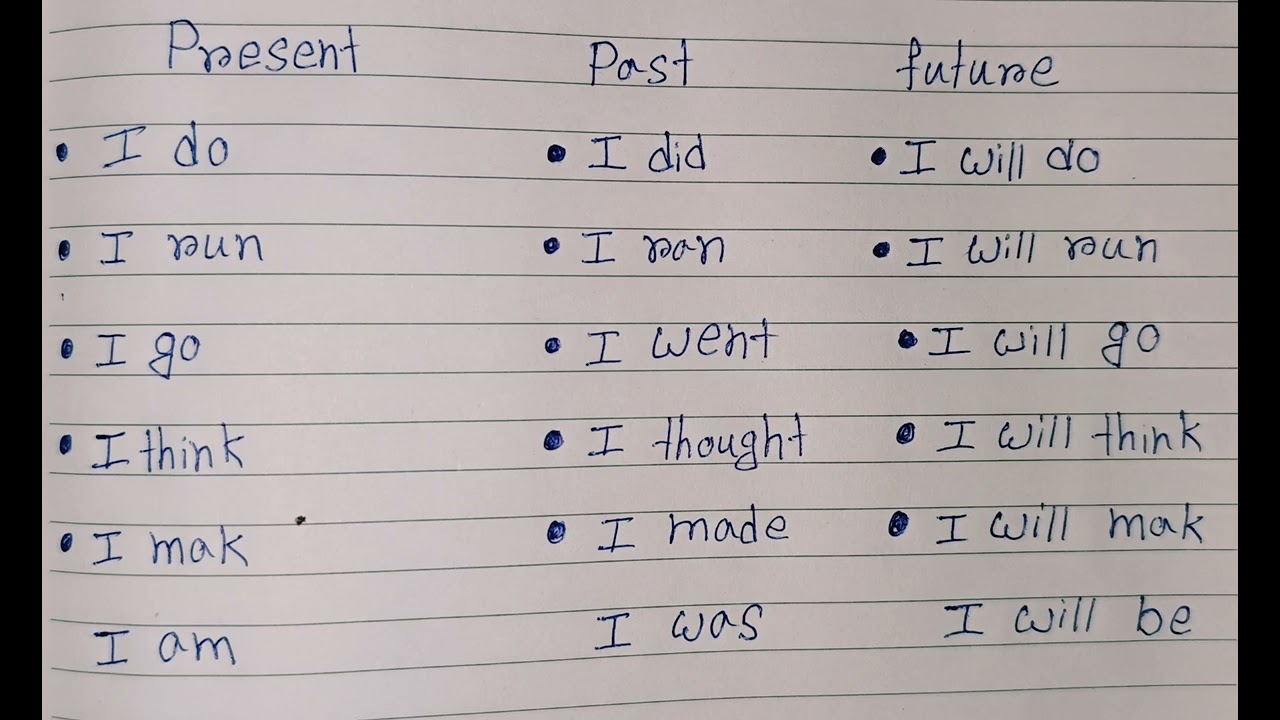 Present Past future
• I do • I did • I will do
• I run • I ran • I will run
• I go • I went • I will go
• I think • I thought • I will think
• I mak • I made • I will mak
I am I was I will be